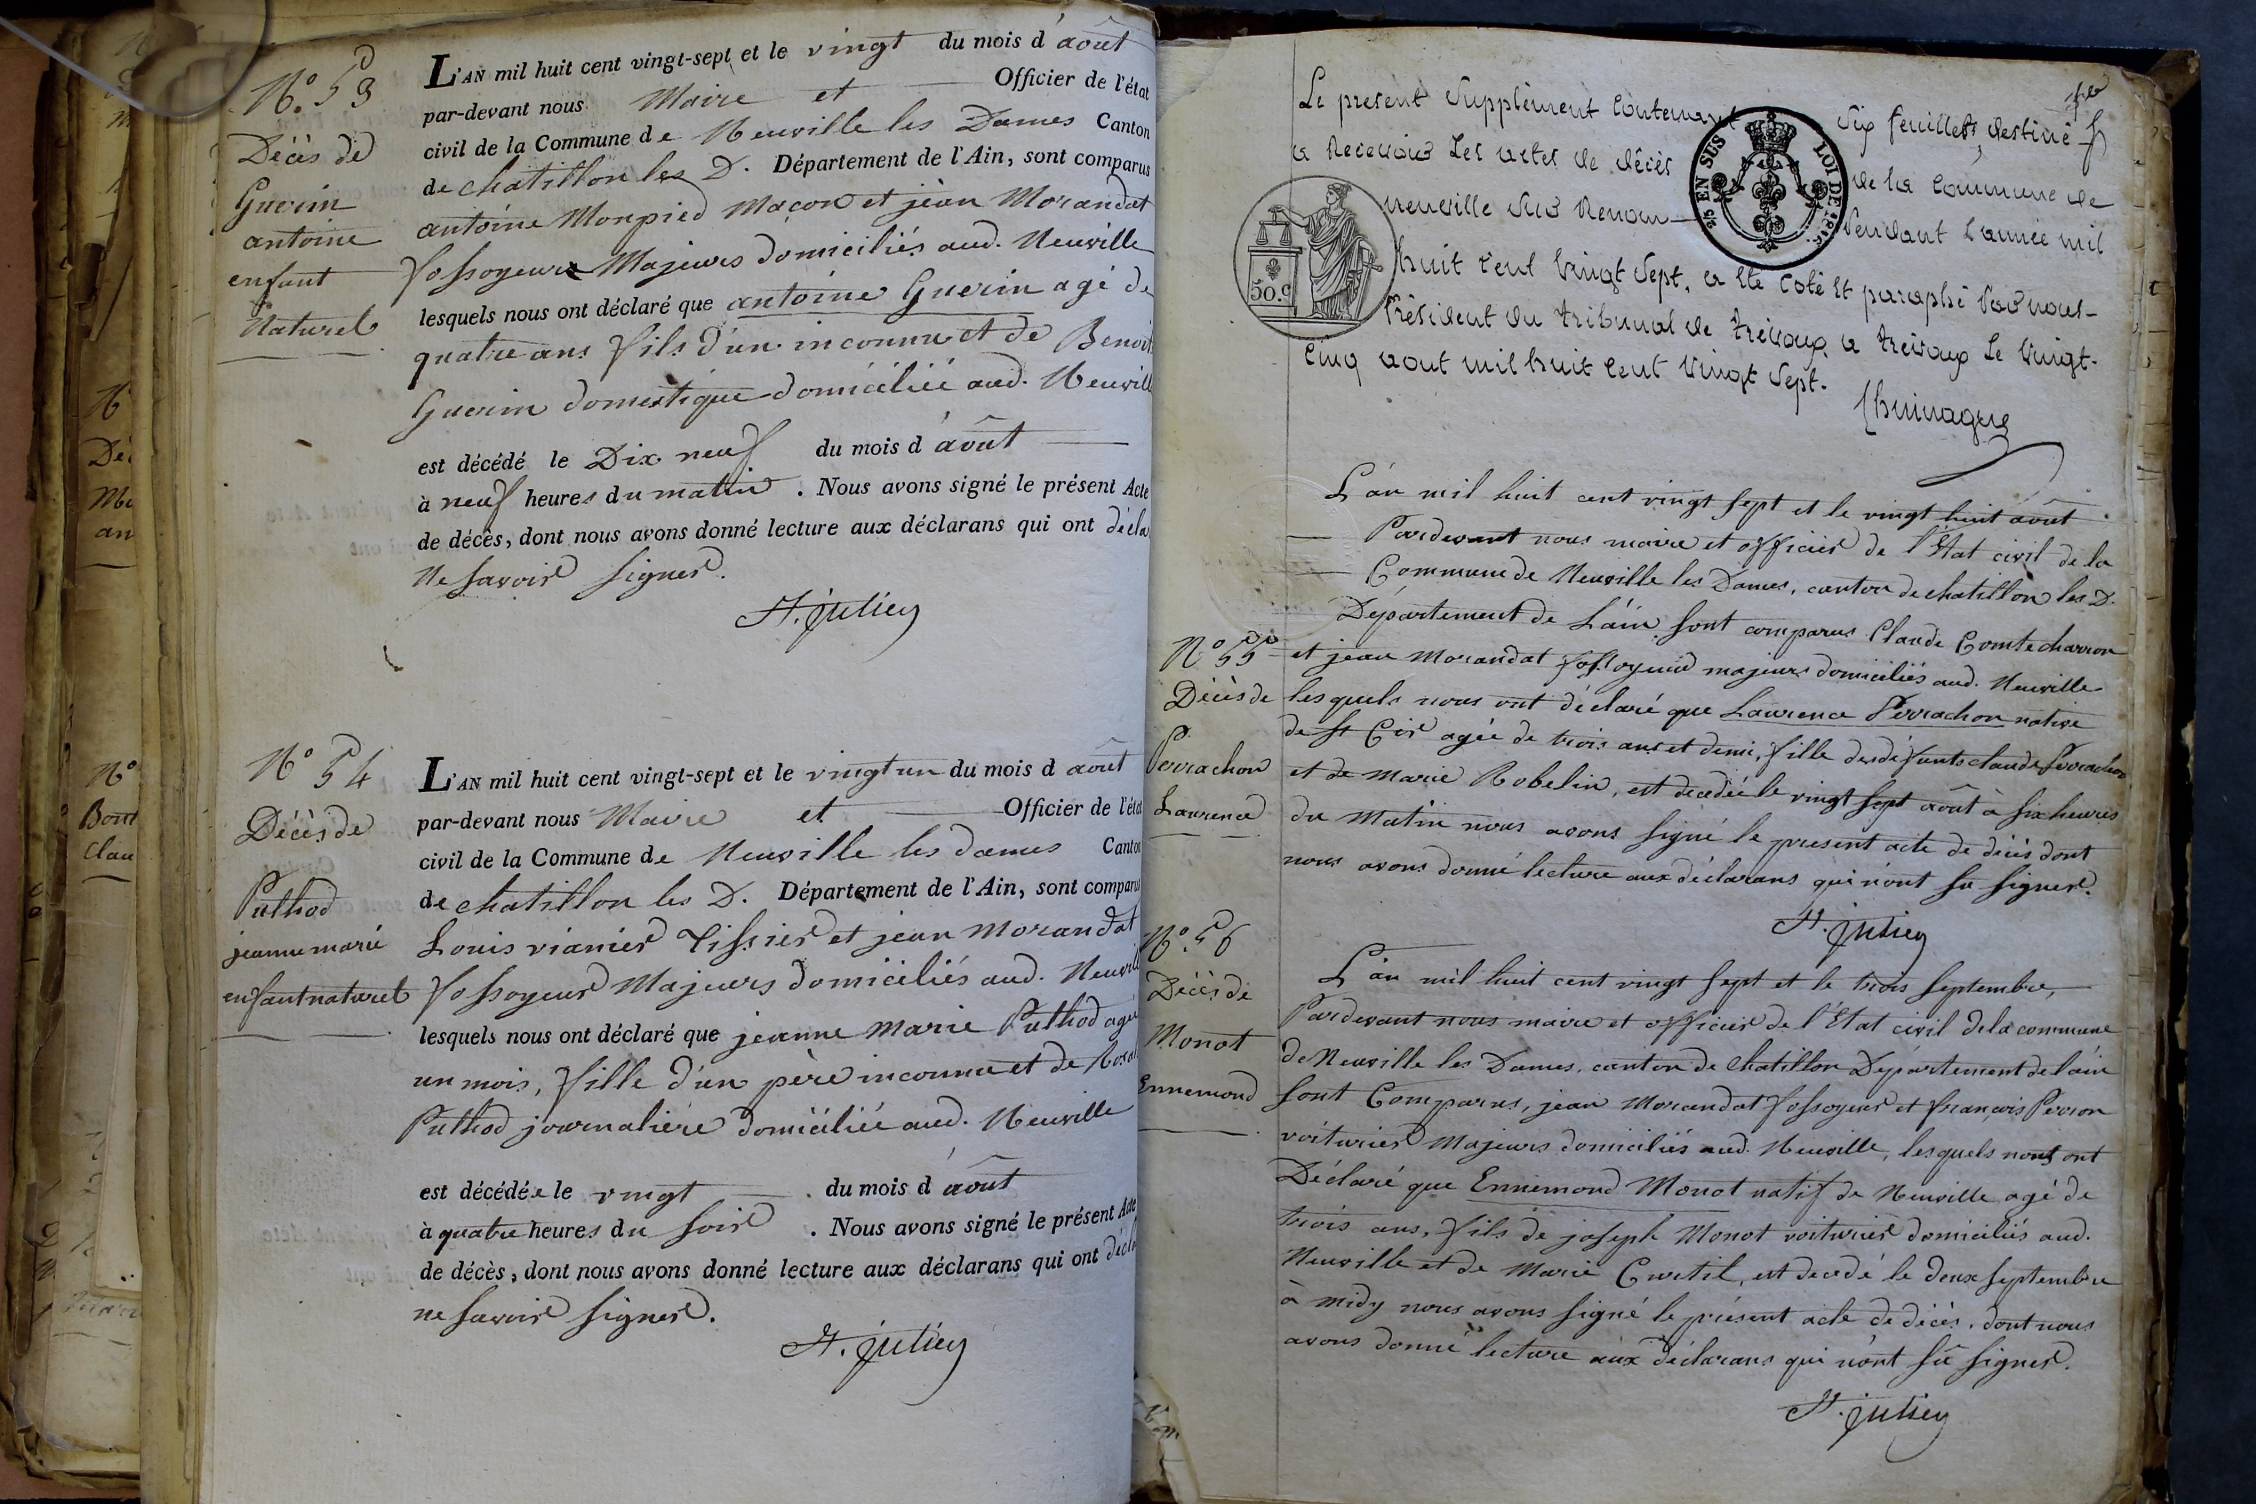 N.° 53
Décès de
Guerin
antoine
enfant
Naturel
L'AN mil huit cent vingt-sept et le vingt du mois d'août
par-devant nous Maire et Officier de l'état
civil de la Commune de Neuville les Dames Canton
de chatillon les D. Département de l'Ain, sont comparus
antoine Monpied Macon et jèan Morandat
fossoyeur Majeurs domiciliés aud. Neuville
lesquels nous ont déclaré que antoine Guerin agé de
quatre ans fils d'un inconnu et de Benoit
Guerin domestique domiciliée aud. Neuvill
est décédé le Dix neuf du mois d'août
à neuf heures du matin. Nous avons signé le présent Acte
de décès, dont nous avons donné lecture aux déclarans qui ont décla
Ne savoir signer.
St. julien
N° 54
Décès de
Puthod
jeanne marie
enfant naturel
L'AN mil huit cent vingt-sept et le vingt un du mois d août
par-devant nous Maire et Officier de l'état
civil de la Commune de Neuville les dames Canton
de chatillon les D. Département de l'Ain, sont comparus
Louis vianier Tissier et jean Morandat
fossoyeur Majeurs domiciliés aud. Neuvill
lesquels nous ont déclaré que jeanne Marie Puthod agée
un mois, fille d'un père inconnu et de Rosal
Puthod journalière domiciliée aud. Neuville
est décédée le vingt du mois d'août
à quatre heures du soir. Nous avons signé le présent Acte
de décès, dont nous avons donné lecture aux déclarans qui ont décla
ne savoir signer.
St. julien
Le present Supplément Contenant Six feuillets, destiné
a Recevoir Les actes de décès de la Commune de
neuville sur Renom Pendant L'année mil
huit Cent Vingt Sept, a été Coté Et paraphé Par nous
Président du tribunal de trévoux a trévoux Le Vingt-
Cinq aout mil huit Cent Vingt Sept.
EN SUS
LOI DE
50.c
L'àn mil huit cent vingt sept et le vingt huit août
Pardevant nous maire et officier de l'État civil de la
Commune de Neuville les Dames, canton de chatillon les D.
Département de L'áin sont comparus Claude Comte charron
N° 55
Décès de
Perrachon
Laurence
et jean Morandat fossoyeur majeurs domiciliés aud. Neuville
lesquels nous ont déclaré que Laurence Perrachon native
de St Cir agée de trois ans et demi, fille des défunts claude Perrachon
et de Marie Robelin, est decedée le vingt sept août à six heures
du Matin nous avons signé le present acte de décès dont
nous avons donné lecture aux déclarans qui n'ont su signer.
St. julien
N.° 56
Décès de
Monot
Ennemond
L'àn mil huit cent vingt sept et le trois septembre,
Pardevant nous maire et officier de l'État civil de la commune
de Neuville les Dames, canton de chatillon Département de l'ain
sont Comparus, jean Morandat fossoyeur et françois Perron
voiturier Majeurs domiciliés aud. Neuville, lesquels nous ont
Déclaré que Ennemond Monot natif de Neuville agé de
trois ans, fils de joseph Monot voiturier domiciliés aud.
Neuville et de Marie Curtil, est decedé le deux septembre
à midy nous avons signé le présent acte de décès, dont nous
avons donné lecture aux déclarans qui n'ont sû signer.
St. julien